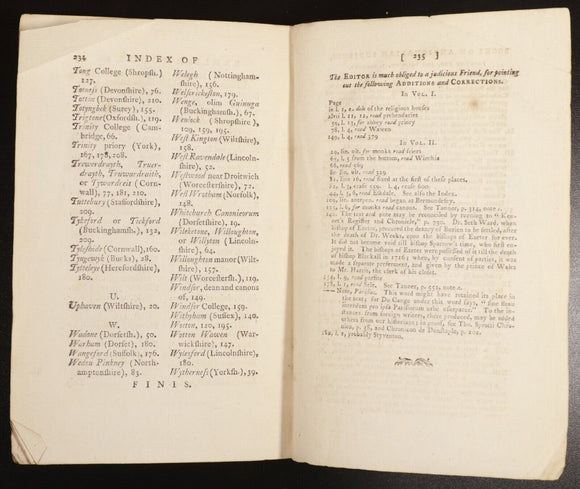 234 INDEX OF
Tong College (Shropsh.)
127.
Totneſs (Devonſhire), 76.
Totton (Devonſhire), 210.
Totyngbek (Surry), 155.
Trinity College (Cam-
bridge, 66.
Trinity priory (York),
167, 178, 208.
Trewerdrayth, Truer-
drayth, Truwardraith,
or Tywardreit (Corn-
wall), 77, 181, 210.
Tuttebury (Staffordſhire),
209.
Tykeford or Tickford
(Buckinghamſh.), 132,
209.
Tyleſhide (Cornwall), 160.
Tyngewyk (Bucks), 28.
Tytteleye (Herefordſhire),
180.
U.
Uphaven (Wiltſhire), 20.
W.
Wadone (Dorſetſh.), 50.
Warham (Dorſet), 180.
Wangeford (Suffolk), 176.
Weden Pinkney (North-
amptonſhire), 83.
Welegh (Nottingham-
ſhire), 156.
Wenge, olim Guinuga
(Buckinghamſh.), 67.
Wenlock (Shropſhire),
109, 159, 195.
Weſt Kington (Wiltſhire),
158.
Weſt Ravendole (Lincoln-
ſhire), 52.
Weſtwood near Droitwich
(Worceſterſhire), 72.
Weſt Wratham (Norfolk),
148.
Whitchurch Canonicorum
(Dorſetſhire), 19.
Wileketone, Willoughton,
or Willyton (Lincoln-
ſhire), 64.
Willoughton manor (Wilt-
ſhire), 157.
Wilt (Worceſterſh.), 119.
Windſor, dean and canons
of, 149.
Windſor College, 159.
Withyham (Suſſex), 140.
Wotton, 120, 195.
Wotton Wawen (War-
wickſhire), 147.
Wyleſford (Lincolnſhire),
180.
Wytherneſs (Yorkſh.), 39.
FINIS.
[ 235 ]
The EDITOR is much obliged to a judicious Friend, for pointing
out the following ADDITIONS and CORRECTIONS.
IN VOL. I.
Page
l. 2, dele of the religious houſes
l. 12, read prebendaries
89, l. 13, for abbey read priory
78, l. 4, read Waven
149, l. 4, read 379
IN VOL. II.
29, lin. ult. for monks read friers
65, l. 3 from the bottom, read Wirchia
66, read 569
80, lin. ult. read 309
l. 16, read fixed at the firſt of theſe places.
See alſo the Index.
109, lin. antepen. read began at Bermondeſey.
l. 6, for monks read canons. See Tanner, p. 314, note
142, The text and note may be reconciled by turning to "Ken-
net's Regiſter and Chronicle," p. 790. Dr. Seth Ward, when
biſhop of Exeter, procured the deanry of Burien to be ſettled, after
the death of Dr. Weeks, upon the biſhops of Exeter for ever.
It did not become void till biſhop Sparrow's time, who firſt en-
joyed it. The biſhops of Exeter were poſſeſſed of it till the death
of biſhop Blackall in 1716; when, by conſent of parties, it was
made a ſeparate preferment, and given by the prince of Wales
to Mr. Harris, the clerk of his cloſet.
See Tanner, p. 552, note
Note, Parſilia. This word might have retained its place in
the text: for Du Cange under this word ſays, "ſine ſenſu
inferdum pro ipſa Parſilarum acho uſurpatur." To the in-
ſtances from foreign writers, there produced, may be added
others from our hiſtorians; in proof, ſee Tho. Sprotti Chro-
nica, p. 58, and Chronicon de Dunſtaple, p. 102.
182, l. 1, probably Styventon.